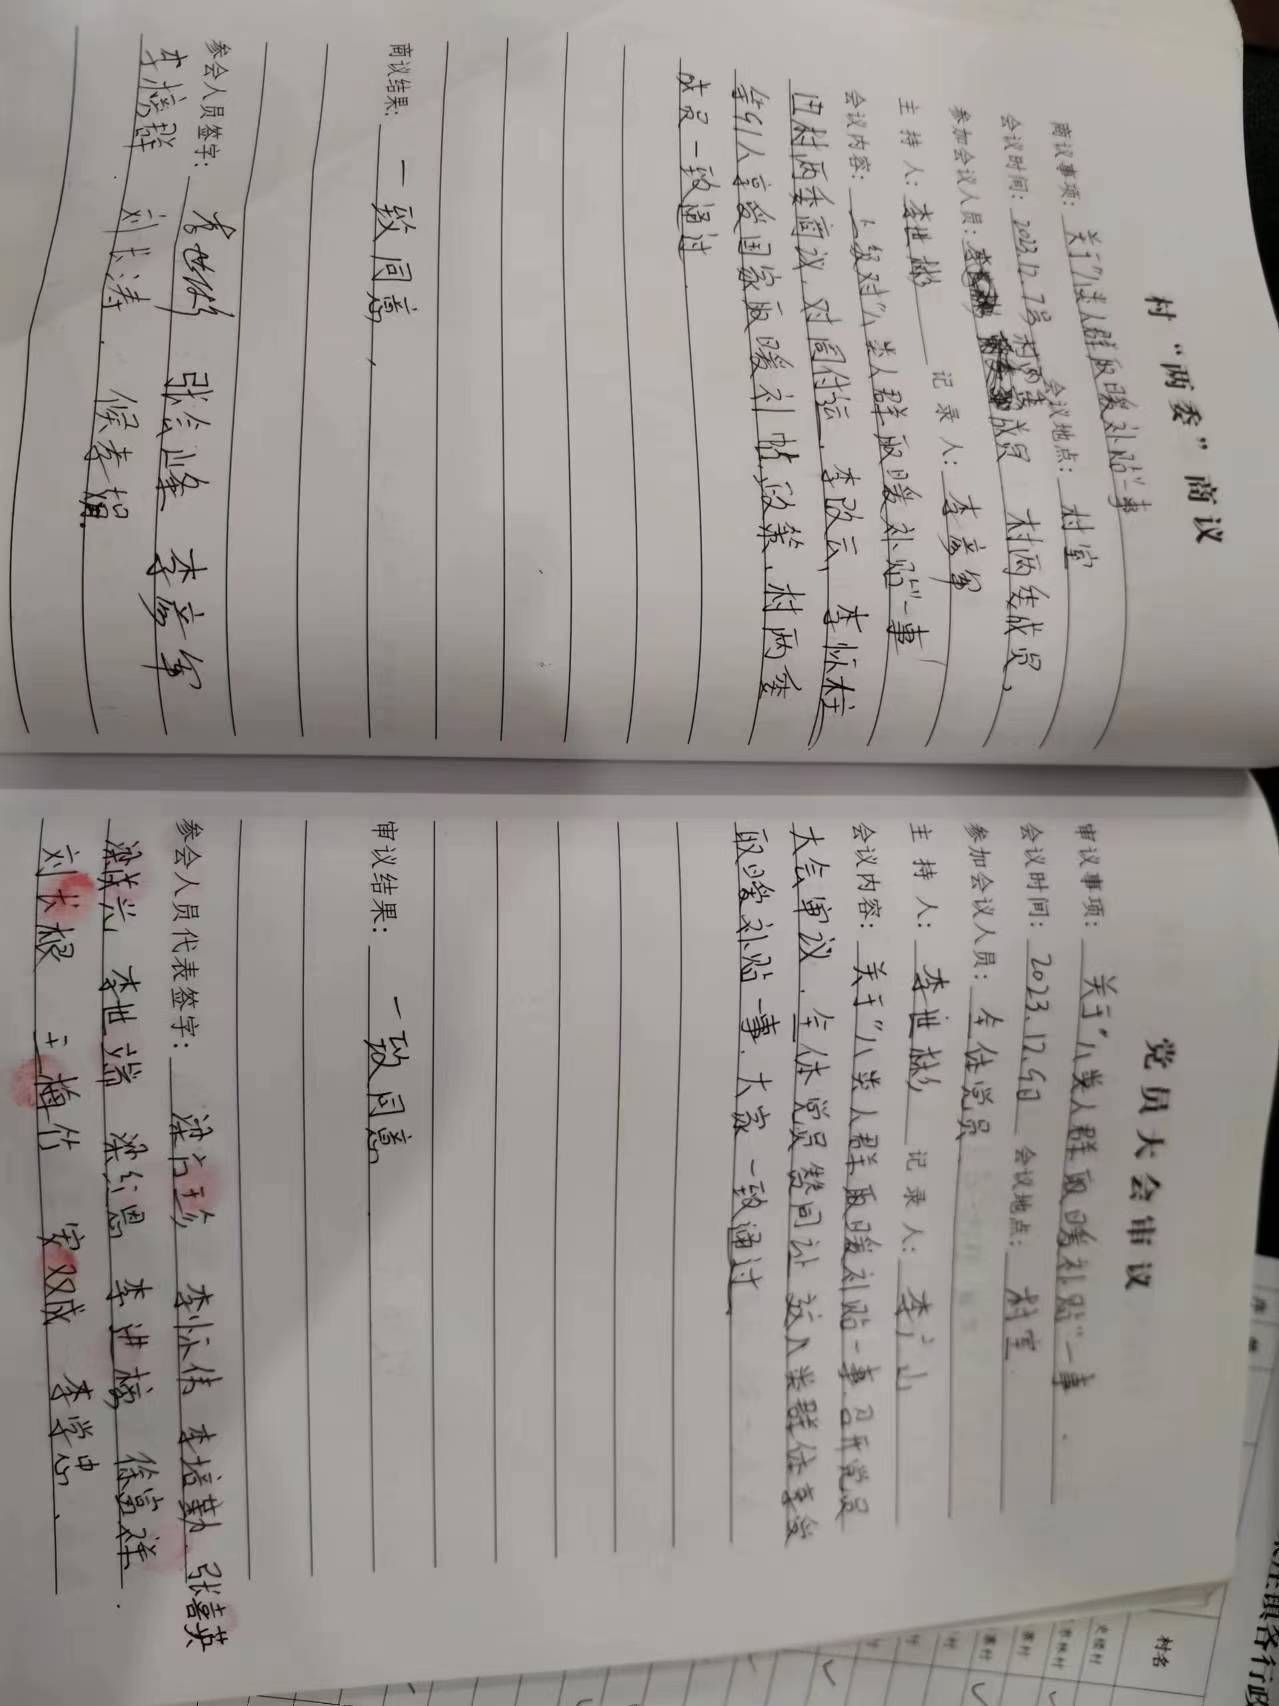 村“两委”商议
商议事项：关于“八类人群取暖补贴”一事
会议时间：2023.12.7号 会议地点：村室
参加会议人员：村两委成员 村两委成员，
主持人：李世彬 记录人：李彦军
会议内容：上级对“八类人群取暖补贴”一事
由村两委商议，对周付坛、李改云、李怀柱
等91人享受国家取暖补帖政策，村两委
成员一致通过
商议结果：一致同意，
参会人员签字：李世彬 张会峰 李彦军
李榜群 刘长涛.
党员大会审议
审议事项：关于“八类人群取暖补贴”一事.
会议时间：2023.12.9日 会议地点：村室
参加会议人员：全体党员
主持人：李世彬 记录人：李广山
会议内容：关于“八类人群取暖补贴一事.召开党员
大会审议.全体党员赞同让这八类群体享受
取暖补贴一事.大家一致通过
审议结果：一致同意
参会人员代表签字：李怀伟 李培勤.张喜英
李世端 李进榜 徐富祥.
刘长根 王梅竹 李学忠.
村名